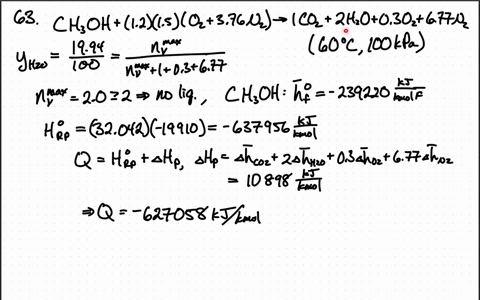 63. CH3OH + (1.2)(1.5)(O2 + 3.76N2) → 1CO2 + 2H2O + 0.3O2 + 6.77N2
(60°C, 100kPa)
yH2O = 19.94/100 = nv^max/(nv^max + 1 + 0.3 + 6.77)
nv^max = 2.0 ≥ 2 ⇒ no liq., CH3OH: h̄f° = -239220 kJ/kmolF
H°RP = (32.042)(-19910) = -637956 kJ/kmol
Q = H°RP + ΔHP, ΔHP = Δh̄CO2 + 2Δh̄H2O + 0.3Δh̄O2 + 6.77Δh̄N2
= 10898 kJ/kmol
⇒ Q = -627058 kJ/kmol